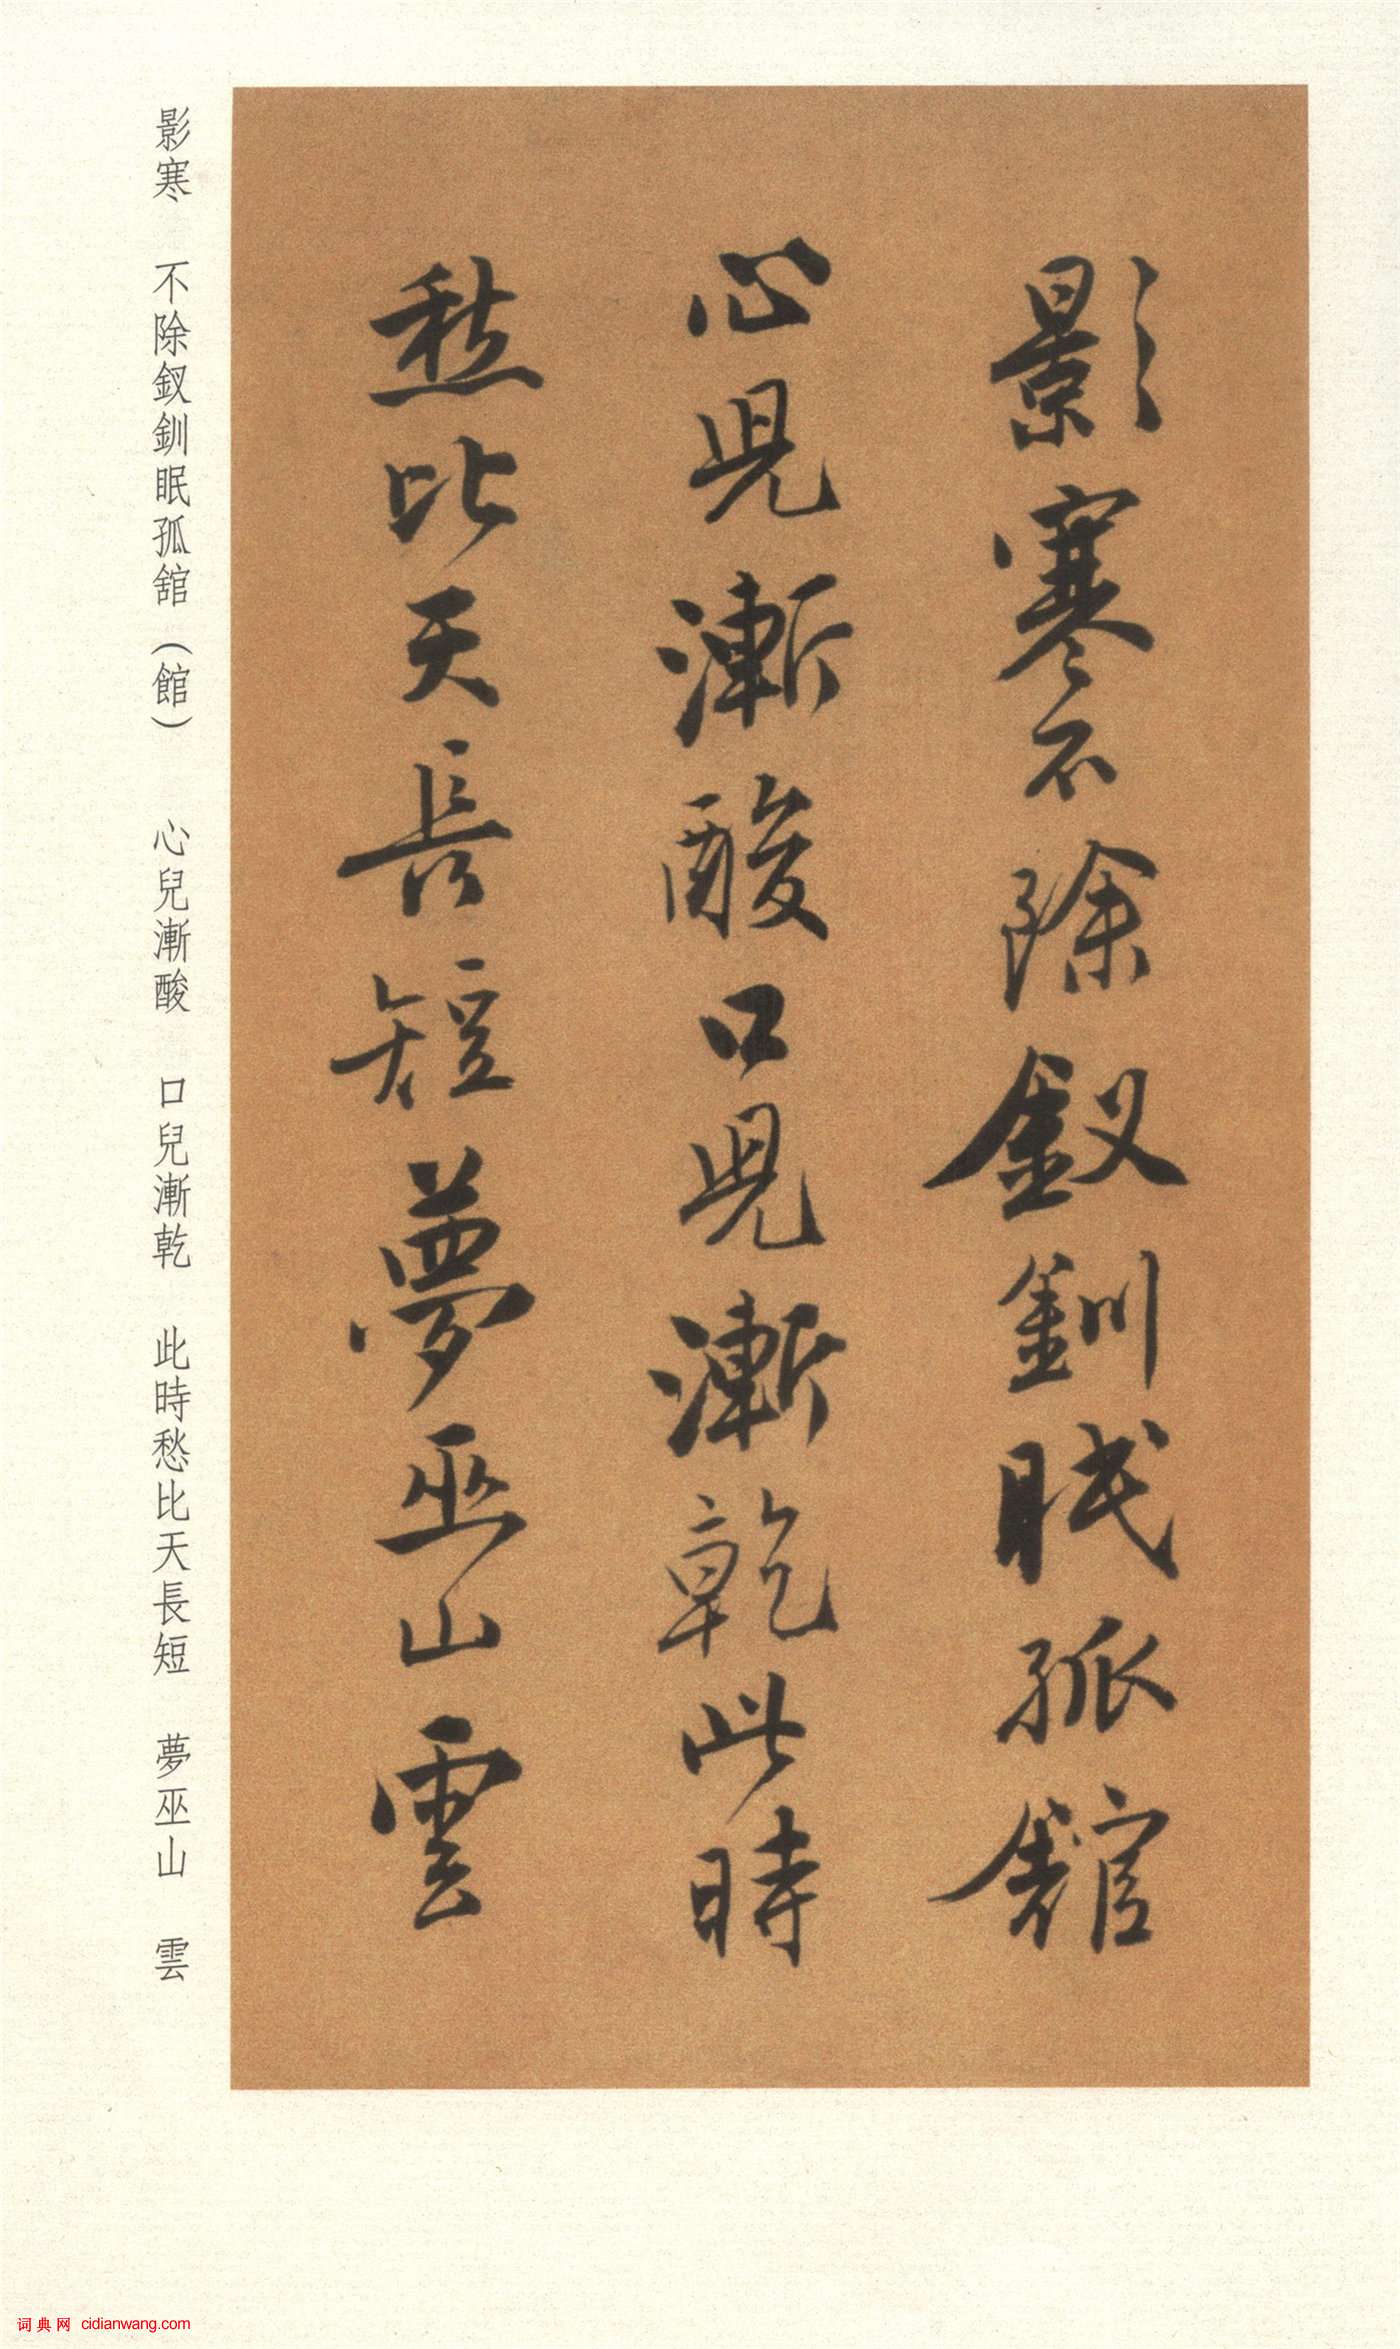 影寒不除釵釧眠孤舘
心兒漸酸口兒漸乾此時
愁比天長短夢巫山雲
影寒 不除釵釧眠孤舘（館） 心兒漸酸 口兒漸乾 此時愁比天長短 夢巫山 雲
词典网 cidianwang.com